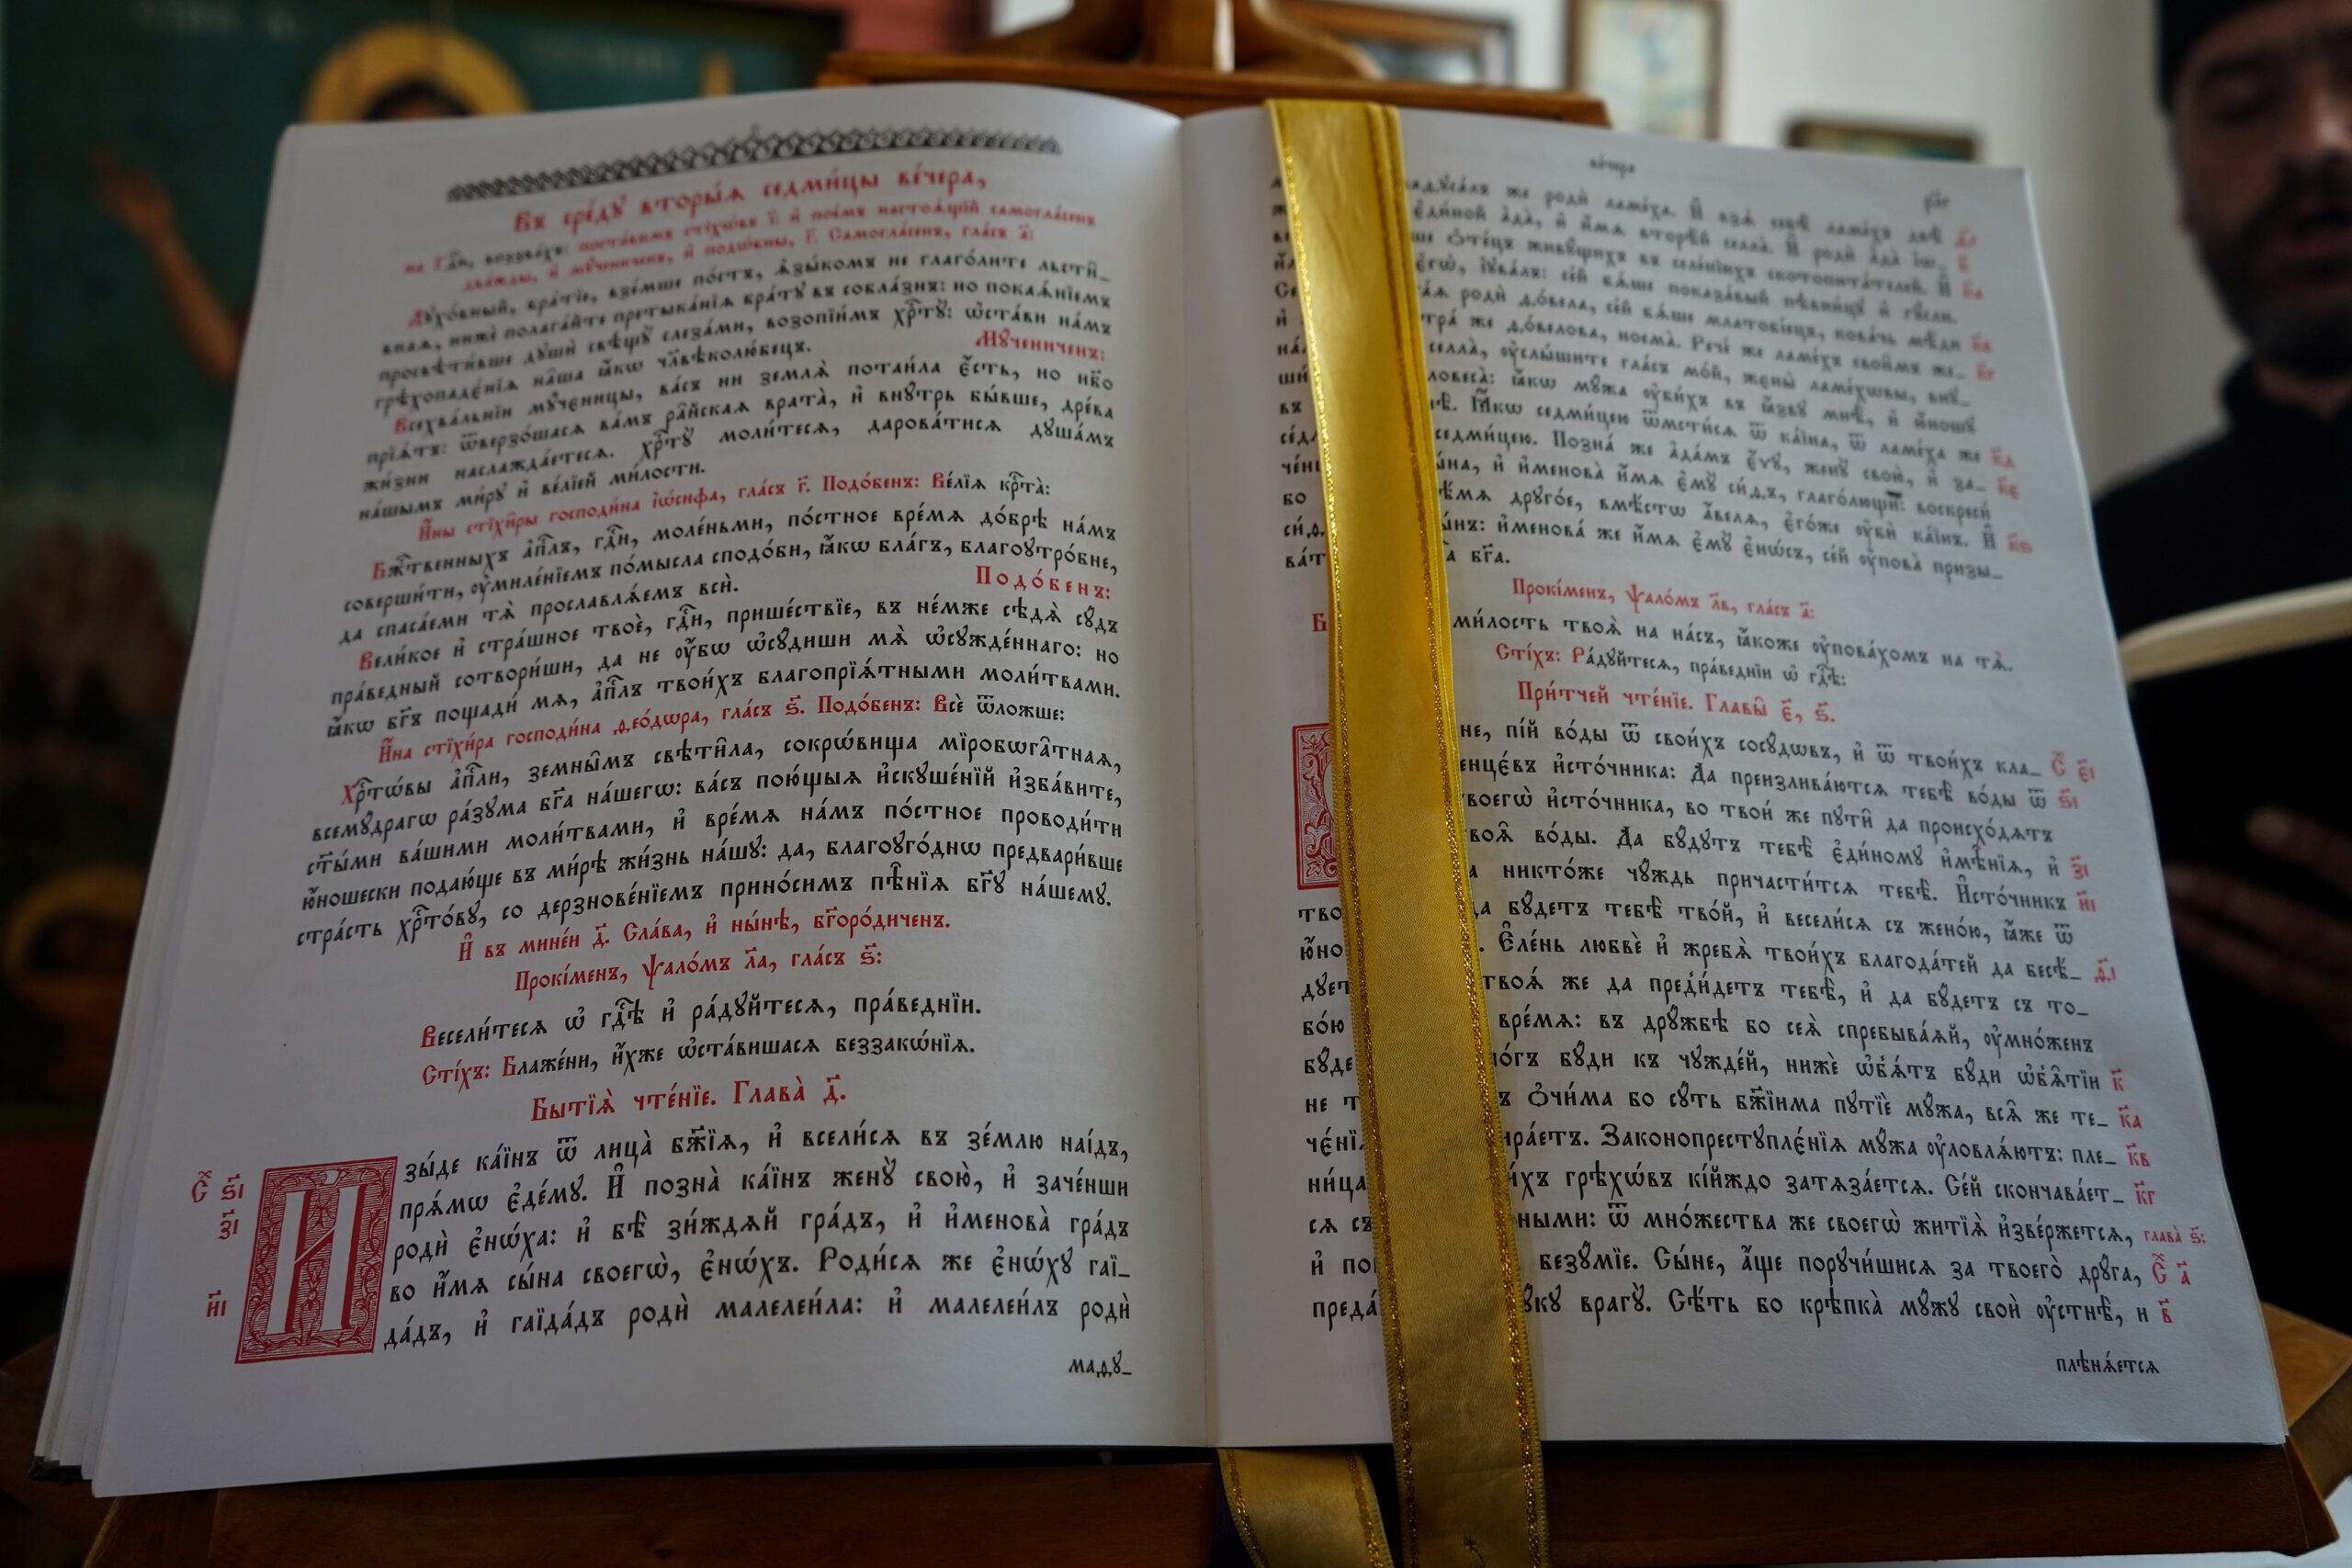 Въ сре́дꙋ вторы́ѧ седми́цы ве́чера,
на Гд҇и, воззва́хъ: поста́вимъ стїхѡ́въ і҃: и҆ пое́мъ настоѧ́щїй самогла́сенъ
два́жды, и҆ мꙋ́чниченъ, и҆ подѡ́бны, г҃. Самогла́сенъ, гла́съ а҃:
Дꙋхо́вный, бра́тїе, взе́мше по́стъ, ѧ҆зы́комъ не глаго́лите льсти̑_
внаѧ, нижѐ полага́йте претыка́нїѧ бра́тꙋ въ собла́знъ: но покаѧ́нїемъ
просвѣти́вше дꙋшѝ свѣщꙋ̀ слеза́ми, возопїи́мъ хрⷭ҇тꙋ̀: ѡ҆ста́ви на́мъ
грѣхопаде́нїѧ на̑ша ꙗ҆́кѡ чл҃вѣколю́бецъ.
Мꙋ́чениченъ:
Всехва́льнїи мꙋ́ченицы, ва́съ ни землѧ̀ потаи́ла є҆́сть, но нб҃о
прїѧ́тъ: ѿверзо́шасѧ ва́мъ ра̑йскаѧ врата̀, и҆ внꙋ́трь бы́вше, дре́ва
жи́зни наслажда́етесѧ. хрⷭ҇тꙋ̀ моли́тесѧ, дарова́тисѧ дꙋша́мъ
на́шымъ ми́рꙋ и҆ ве́лїей ми́лости.
И҆́ны стїхи̑ры господи́на і҆ѡ́сифа, гла́съ г҃. Подо́бенъ: Ве́лїѧ крⷭ҇та̀:
Бжⷭ҇твенныхъ а҆пⷭ҇лъ, гдⷭ҇и, моле́ньми, по́стное вре́мѧ до́брѣ на́мъ
соверши́ти, ᲂу҆миле́нїемъ по́мысла сподо́би, ꙗ҆́кѡ бла́гъ, благоꙋтро́бне,
да спаса́еми тѧ̀ прославлѧ́емъ всѝ.
Подо́бенъ:
Вели́кое и҆ стра́шное твоѐ, гдⷭ҇и, прише́ствїе, въ не́мже сѣдѧ̀ сꙋ́дъ
пра́ведный сотвори́ши, да не ᲂу҆́бѡ ѡ҆сꙋ́диши мѧ̀ ѡ҆сꙋжде́ннаго: но
ꙗ҆́кѡ бг҃ъ пощади́ мѧ, а҆пⷭ҇лъ твои́хъ благопрїѧ́тными моли́твами.
И҆́на стїхи́ра господи́на ѳео́дѡра, гла́съ ѕ҃. Подо́бенъ: Всѐ ѿло́жше:
Хрⷭ҇тѡ́вы а҆пⷭ҇ли, земны̑мъ свѣти̑ла, сокрѡ́вища мїробѡга̑тнаѧ,
всемꙋ́драгѡ ра́зꙋма бг҃а на́шегѡ: ва́съ пою́щыѧ и҆скꙋше́нїй и҆зба́вите,
ст҃ы́ми ва́шими моли́твами, и҆ вре́мѧ на́мъ по́стное проводи́ти
ю҆́ношески подаю́ще въ ми́рѣ жи́знь на́шꙋ: да, благоꙋго́днѡ предвари́вше
стра́сть хрⷭ҇то́вꙋ, со дерзнове́нїемъ прино́симъ пѣ̑нїѧ бг҃ꙋ на́шемꙋ.
И҆̀ въ мине́и д҃. Сла́ва, и҆ ны́нѣ, бг҃оро́диченъ.
Прокі́менъ, ѱало́мъ л҃а, гла́съ ѕ҃:
Весели́тесѧ ѡ҆ гдⷭ҇ѣ и҆ ра́дꙋйтесѧ, пра́веднїи.
Сті́хъ: Блаже́ни, и҆̀хже ѡ҆ста́вишасѧ беззакѡ́нїѧ.
Бытїѧ̀ чте́нїе. Глава̀ д҃.
Изы́де ка́їнъ ѿ лица̀ бж҃їѧ, и҆ всели́сѧ въ зе́млю наі́дъ,
прѧ́мѡ є҆де́мꙋ. И҆̀ позна̀ ка́їнъ женꙋ̀ свою̀, и҆ заче́нши
родѝ є҆нѡ́ха: и҆ бѣ̀ зи́ждѧй гра́дъ, и҆ и҆менова̀ гра́дъ
во и҆́мѧ сы́на своегѡ̀, є҆нѡ́хъ. Роди́сѧ же є҆нѡ́хꙋ гаї_
да́дъ, и҆ гаїда́дъ родѝ малелеи́ла: и҆ малелеи́лъ родѝ
С҃ ѕ҃і
з҃і
и҃і
мадꙋ_
ве́чера
родѝ ламе́ха. И҆ взѧ̀ себѣ̀ ламе́хъ двѣ̀
є҆ди́ной а҆да̀, и҆ и҆́мѧ вторѣ́й селла̀. И҆ родѝ а҆да̀
ѻ҆те́цъ живꙋ́щихъ въ селе́нїихъ скотопита́телей. И҆
і҆ꙋва́лъ: се́й бѧ́ше показа́вый пѣвни́цꙋ и҆ гꙋ́сли.
родѝ ѳо́вела, се́й бѧ́ше млатобі́ецъ, кова́чь мѣ́ди
же ѳо́велова, ноема̀. Рече́ же ламе́хъ свои́мъ же_
селла̀, ᲂу҆слы́шите гла́съ мо́й, жены̀ ламе́хѡвы, внꙋ_
ꙗ҆́кѡ мꙋ́жа ᲂу҆би́хъ въ ꙗ҆́звꙋ мнѣ̀, и҆ ю҆́ношꙋ
Ꙗ҆́кѡ седми́цею ѿмсти́сѧ ѿ ка́їна, ѿ ламе́ха же к҃д
седми́цею. Позна́ же а҆да́мъ є҆́ѵꙋ, женꙋ̀ свою̀, и҆ за_ к҃е
и҆ и҆менова̀ и҆́мѧ є҆мꙋ̀ си́ѳъ, глаго́лющи: воскреси́
дрꙋго́е, вмѣ́стѡ а҆́велѧ, є҆го́же ᲂу҆бѝ ка́їнъ. И҆̀ к҃ѕ
и҆менова́ же и҆́мѧ є҆мꙋ̀ є҆нѡ́съ, се́й ᲂу҆пова̀ призы_
бг҃а.
Прокі́менъ, ѱало́мъ л҃в, гла́съ а҃:
ми́лость твоѧ̀ на на́съ, ꙗ҆́коже ᲂу҆пова́хомъ на тѧ̀.
Сті́хъ: Ра́дꙋйтесѧ, пра́веднїи ѡ҆ гдⷭ҇ѣ:
При́тчей чте́нїе. Главы̑ є҃, ѕ҃.
пі́й во́ды ѿ свои́хъ сосꙋ́дѡвъ, и҆ ѿ твои́хъ кла_ С҃ є҃і
и҆сто́чника: Да преизлива́ютсѧ тебѣ̀ во́ды ѿ ѕ҃і
и҆сто́чника, во твои́ же пꙋти̑ да происхо́дѧтъ
во́ды. Да бꙋ́дꙋтъ тебѣ̀ є҆ди́номꙋ и҆мѣ̑нїѧ, и҆ з҃і
никто́же чꙋ́ждь причасти́тсѧ тебѣ̀. И҆сто́чникъ и҃і
бꙋ́детъ тебѣ̀ тво́й, и҆ весели́сѧ съ жено́ю, ꙗ҆́же ѿ
Є҆ле́нь любвѐ и҆ жребѧ̀ твои́хъ благода́тей да бесѣ́_ ѳ҃і
твоѧ́ же да пред̾и́детъ тебѣ̀, и҆ да бꙋ́детъ съ то_
бо́ю вре́мѧ: въ дрꙋ́жбѣ бо сеѧ̀ спребыва́ѧй, ᲂу҆мно́женъ
бꙋ́ди къ чꙋжде́й, нижѐ ѡ҆б̾ѧ́тъ бꙋ́ди ѡ҆б̾ѧ̑тїи к҃
ѻ҆чи́ма бо сꙋ́ть бж҃їима пꙋтїѐ мꙋ́жа, всѧ̑ же те_ к҃а
Законопрестꙋпле́нїѧ мꙋ́жа ᲂу҆ловлѧ́ютъ: пле_ к҃в
грѣхѡ́въ кі́йждо затѧза́етсѧ. Се́й скончава́ет_ к҃г
сѧ ѿ мно́жества же своегѡ̀ житїѧ̀ и҆зве́ржетсѧ, глава̀ ѕ҃:
и҆ безꙋ́мїе. Сы́не, а҆́ще порꙋчи́шисѧ за твоего̀ дрꙋ́га, С҃ а҃
врагꙋ̀. Сѣ́ть бо крѣпка̀ мꙋ́жꙋ своѝ ᲂу҆стнѣ̀, и в҃
плѣнѧ́етсѧ